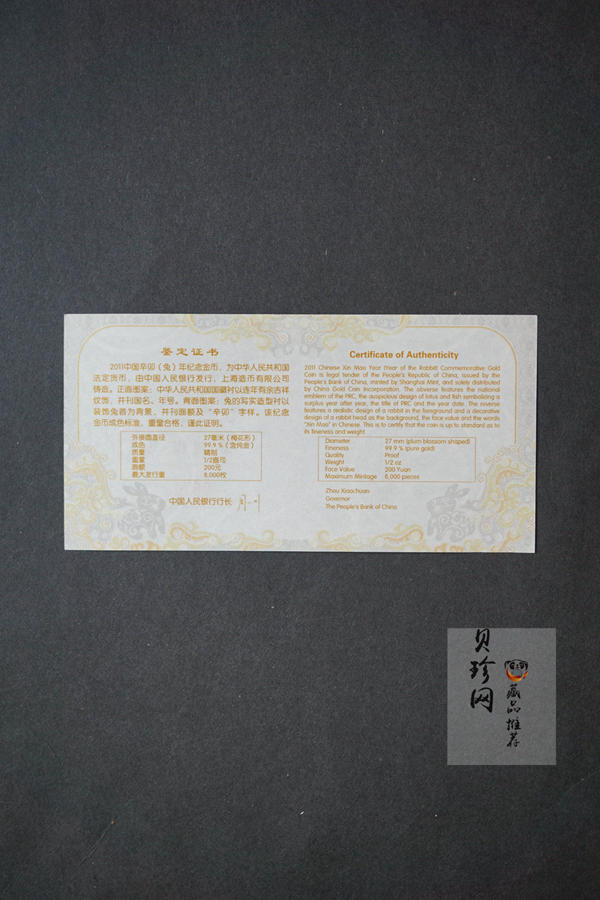 鉴定证书
2011中国辛卯（兔）年纪念金币，为中华人民共和国
法定货币，由中国人民银行发行，上海造币有限公司
铸造。正面图案：中华人民共和国国徽衬以连年有余吉祥
纹饰，并刊国名、年号。背面图案：兔的写实造型衬以
装饰兔首为背景，并刊面额及“辛卯”字样。该纪念
金币成色标准，重量合格，谨此证明。
外接圆直径 27毫米（梅花形）
成色 99.9 %（含纯金）
质量 精制
重量 1/2盎司
面额 200元
最大发行量 8,000枚
中国人民银行行长
Certificate of Authenticity
2011 Chinese Xin Mao Year (Year of the Rabbit) Commemorative Gold
Coin is legal tender of the People's Republic of China, issued by the
People's Bank of China, minted by Shanghai Mint, and solely distributed
by China Gold Coin Incorporation. The obverse features the national
emblem of the PRC, the auspicious design of lotus and fish symbolizing a
surplus year after year, the title of PRC and the year date. The reverse
features a realistic design of a rabbit in the foreground and a decorative
design of a rabbit head as the background, the face value and the words
"Xin Mao" in Chinese. This is to certify that the coin is up to standard as to
its fineness and weight.
Diameter 27 mm (plum blossom shaped)
Fineness 99.9 % (pure gold)
Quality Proof
Weight 1/2 oz
Face Value 200 Yuan
Maximum Mintage 8,000 pieces
Zhou Xiaochuan
Governor
The People's Bank of China
贝珍网
藏品推荐